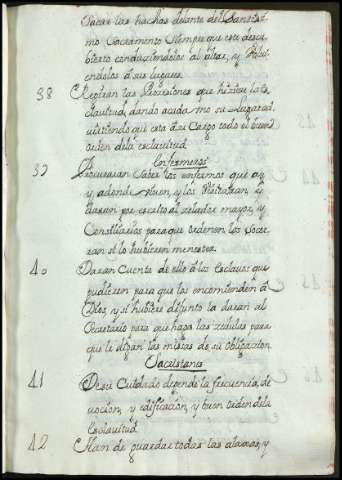 Sacar las hachas delante del Santissi
mo Sacramento Siempre que este descu
bierto conduziendolas al altar, y
a sus lugares.
38 las Prozesiones que hiziere la Es
clavitud, dando a cada uno su lugar ad
virtiendo que esta a su Cargo todo el buen
orden de la esclavitud
Enfermeros
39 Procuraran Saber los enfermos que ay
y adonde viven, y los Visitaran y
daran por escrito al zelador mayor, y
Consiliarios para que ordenen los Socor
ran si lo hubieren menester.
40 Daran Cuenta de ello a los Esclavos que
pudieren para que los encomienden a
Dios, y si hubiere difunto la daran al
Secretario para que haga las zedulas para
que le digan las misas de su obligacion
Sacristanes
41 De su Cuidado depende la frecuencia, de
vocion, y edificacion, y buen orden de la
Esclavitud
42 Han de guardar todas las alaxas, y